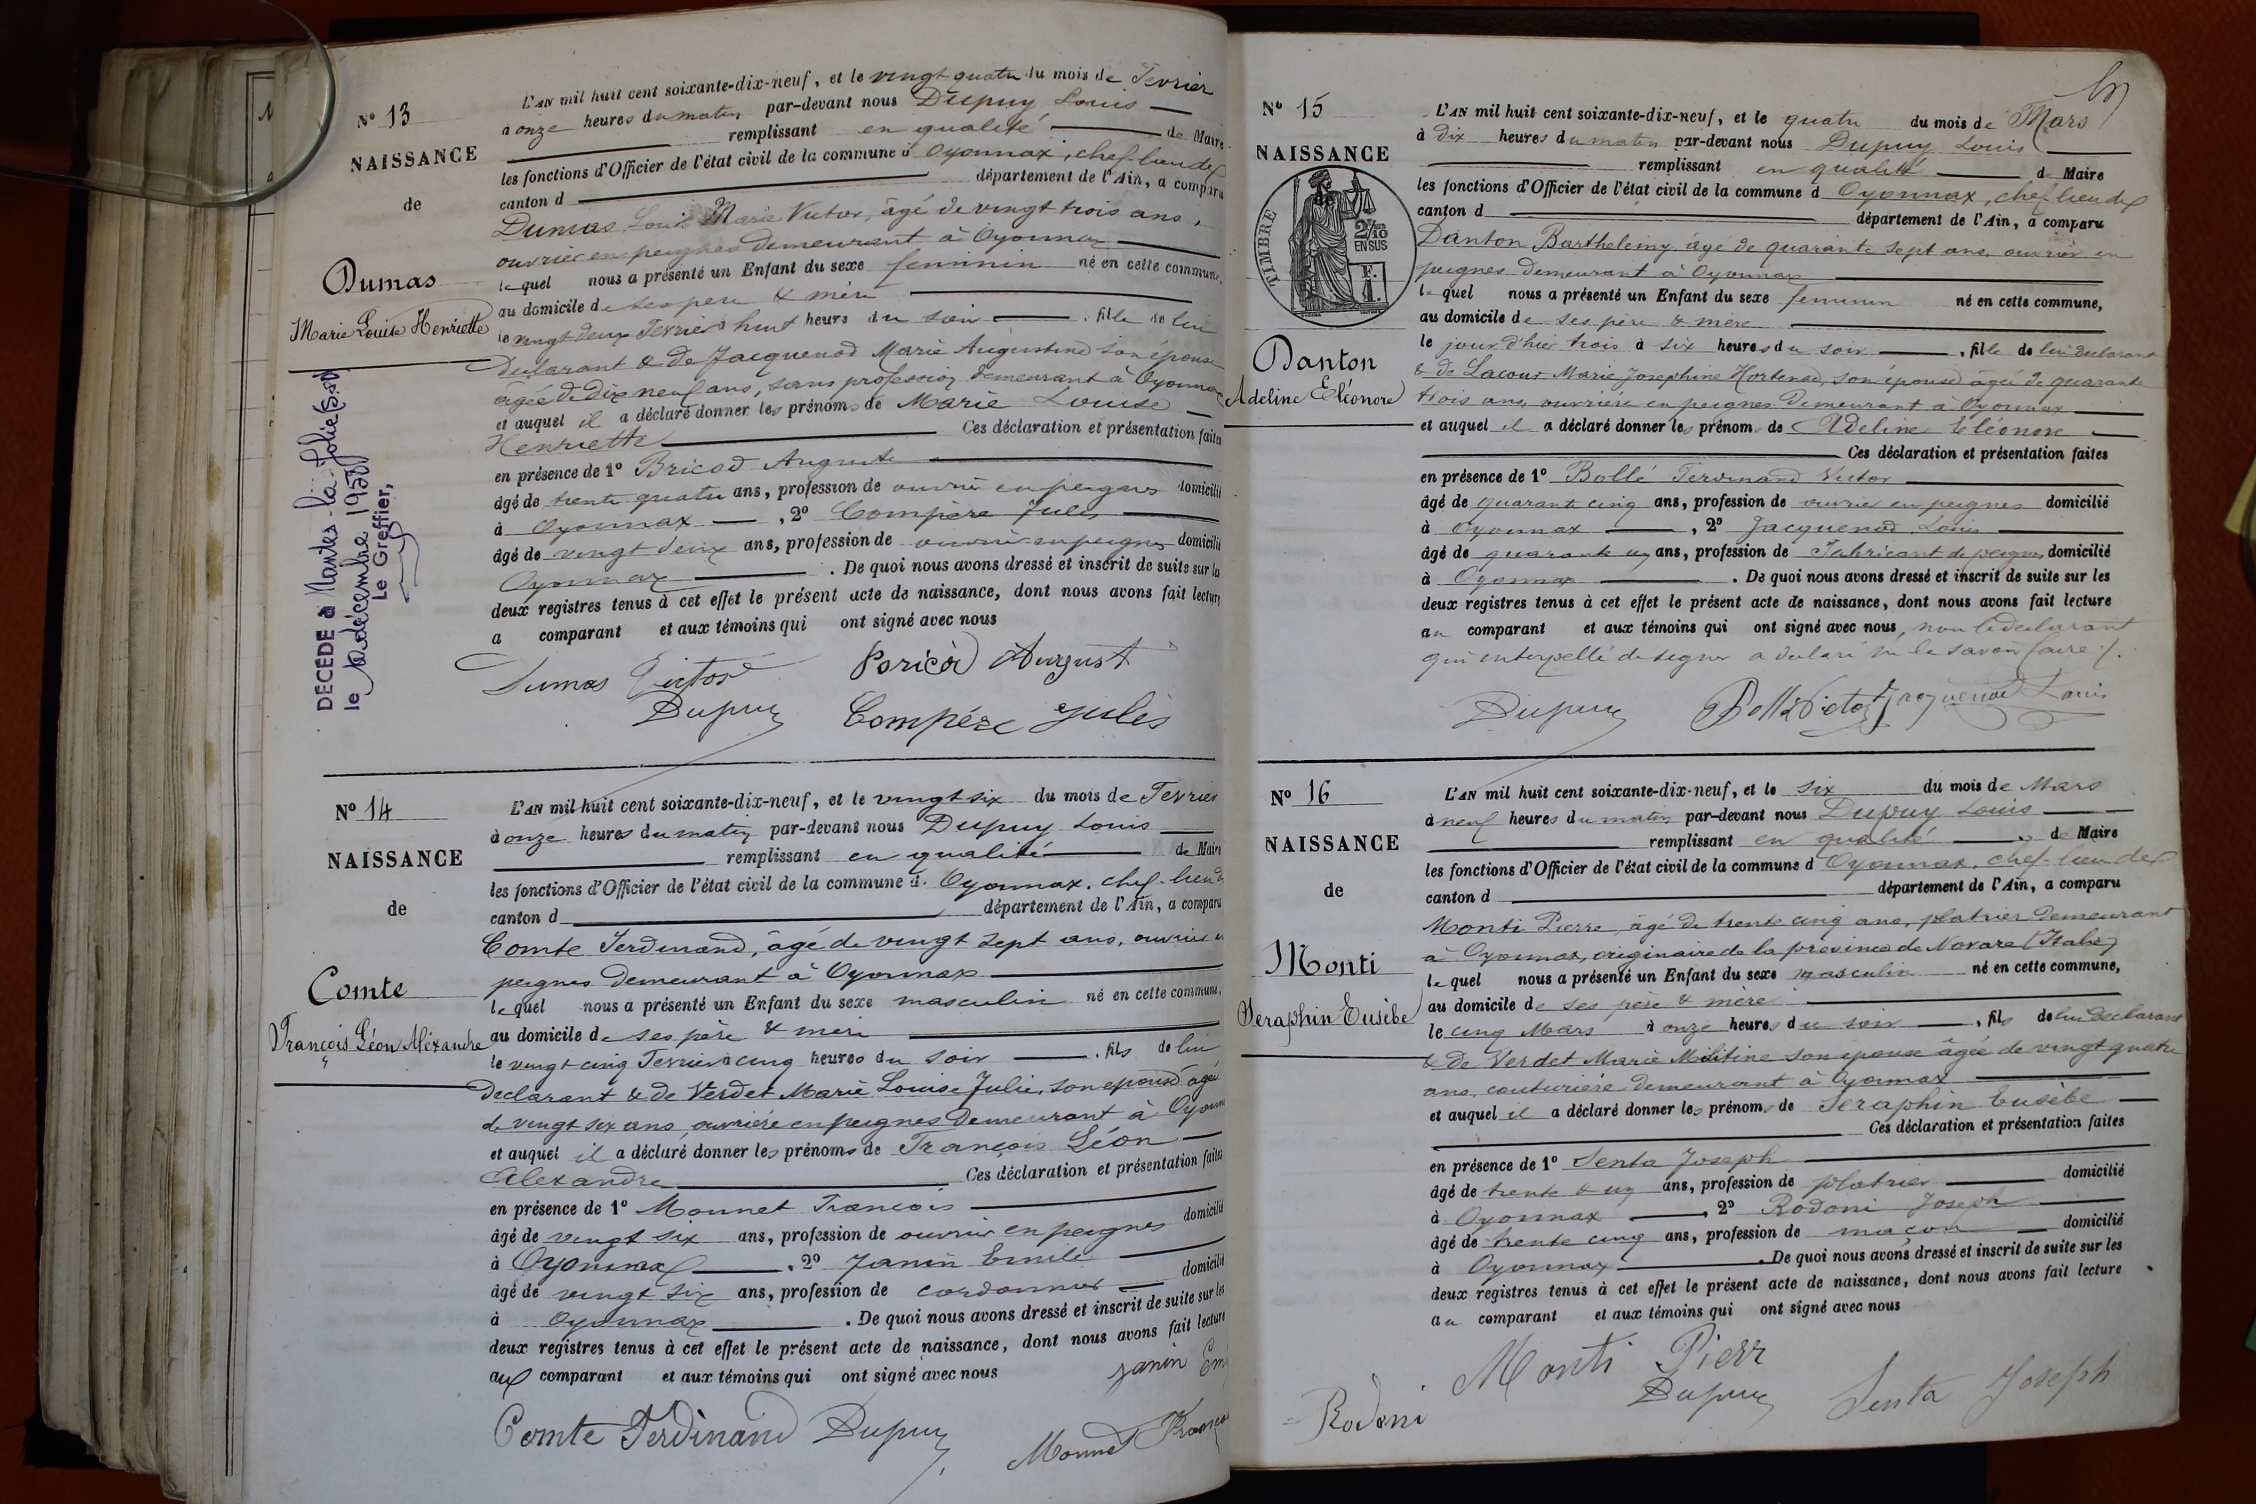 N° 13
NAISSANCE
de
Dumas
Marie Louise Henriette
DÉCÉDÉ à Mantes-la-Jolie (S.&O)
le décembre 1958
Le Greffier,
L'AN mil huit cent soixante-dix-neuf, et le vingt quatre du mois de Fevrier
à onze heures du matin par-devant nous Dupuy Louis
remplissant en qualité de Maire
les fonctions d'Officier de l'état civil de la commune d' Oyonnax, chef-lieu de
canton d département de l'Ain, a comparu
Dumas Louis Marie Victor, âgé de vingt trois ans,
ouvrier en peignes demeurant à Oyonnax
lequel nous a présenté un Enfant du sexe feminin né en cette commune,
au domicile de ses père & mère
le vingt deux Fevrier à huit heures du soir, fille de lui
declarant & de Jacquenod Marie Augustine son épouse
âgée de dix neuf ans, sans profession demeurant à Oyonnax
et auquel il a déclaré donner les prénoms de Marie Louise
Henriette Ces déclaration et présentation faites
en présence de 1° Bricod Auguste
âgé de trente quatre ans, profession de ouvrier en peignes domicilié
à Oyonnax, 2° Compère Jules
âgé de vingt deux ans, profession de ouvrier en peignes domicilié
Oyonnax. De quoi nous avons dressé et inscrit de suite sur les
deux registres tenus à cet effet le présent acte de naissance, dont nous avons fait lecture
a comparant et aux témoins qui ont signé avec nous
Dumas Victor Bricod August
Dupuy Compére Jules
N° 14
NAISSANCE
de
Comte
François Léon Aléxandre
L'AN mil huit cent soixante-dix-neuf, et le vingt six du mois de Fevrier
à onze heures du matin par-devant nous Dupuy Louis
remplissant en qualité de Maire
les fonctions d'Officier de l'état civil de la commune d' Oyonnax, chef-lieu de
canton d département de l'Ain, a comparu
Comte Ferdinand, âgé de vingt sept ans, ouvrier en
peignes demeurant à Oyonnax
lequel nous a présenté un Enfant du sexe masculin né en cette commune,
au domicile de ses père & mère
le vingt cinq Fevrier à cinq heures du soir, fils de lui
declarant & de Verdet Marie Louise Julie, son epouse agée
de vingt six ans, ouvrière en peignes demeurant à Oyonnax
et auquel il a déclaré donner les prénoms de François Léon
Alexandre Ces déclaration et présentation faites
en présence de 1° Monnet François
âgé de vingt six ans, profession de ouvrier en peignes domicilié
à Oyonnax, 2° Janin Emile
âgé de vingt six ans, profession de cordonnier domicilié
à Oyonnax. De quoi nous avons dressé et inscrit de suite sur les
deux registres tenus à cet effet le présent acte de naissance, dont nous avons fait lecture
au comparant et aux témoins qui ont signé avec nous
Janin Em
Comte Ferdinand Dupuy Monnet
N° 15
NAISSANCE
de
TIMBRE
2/10
EN SUS
F.
Danton
Adeline Eléonore
L'AN mil huit cent soixante-dix-neuf, et le quatre du mois de Mars
à dix heures du matin par-devant nous Dupuy Louis
remplissant en qualité de Maire
les fonctions d'Officier de l'état civil de la commune d Oyonnax, chef lieu de
canton d département de l'Ain, a comparu
Danton Barthelemy âgé de quarante sept ans, ouvrier en
peignes demeurant à Oyonnax
lequel nous a présenté un Enfant du sexe feminin né en cette commune,
au domicile de ses père & mère
le jour d'hier trois à six heures du soir, fille de lui declarant
& de Lacour Marie Josephine Hortense, son épouse âgée de quarante
trois ans, ouvrière en peignes demeurant à Oyonnax
et auquel il a déclaré donner les prénoms de Adeline Eléonore
Ces déclaration et présentation faites
en présence de 1° Bollé Ferdinand Victor
âgé de quarante cinq ans, profession de ouvrier en peignes domicilié
à Oyonnax, 2° Jacquenod Louis
âgé de quarante un ans, profession de Fabricant de peignes domicilié
à Oyonnax. De quoi nous avons dressé et inscrit de suite sur les
deux registres tenus à cet effet le présent acte de naissance, dont nous avons fait lecture
au comparant et aux témoins qui ont signé avec nous, non le declarant
qui interpellé de signer a declaré ne le savoir faire
Dupuy Bollé Victor Jacquenod Louis
N° 16
NAISSANCE
de
Monti
Seraphin Eusèbe
L'AN mil huit cent soixante-dix-neuf, et le six du mois de Mars
à neuf heures du matin par-devant nous Dupuy Louis
remplissant en qualité de Maire
les fonctions d'Officier de l'état civil de la commune d Oyonnax, chef-lieu de
canton d département de l'Ain, a comparu
Monti Pierre, âgé de trente cinq ans, platrier demeurant
à Oyonnax, originaire de la province de Novare (Italie)
lequel nous a présenté un Enfant du sexe masculin né en cette commune,
au domicile de ses père & mère
le cinq Mars à onze heures du soir, fils de lui declarant
& de Verdet Marie Militine son epouse âgée de vingt quatre
ans, couturière demeurant à Oyonnax
et auquel il a déclaré donner les prénoms de Seraphin Eusèbe
Ces déclaration et présentation faites
en présence de 1° Senta Joseph
âgé de trente & un ans, profession de platrier domicilié
à Oyonnax, 2° Rodoni Joseph
âgé de trente cinq ans, profession de maçon domicilié
à Oyonnax. De quoi nous avons dressé et inscrit de suite sur les
deux registres tenus à cet effet le présent acte de naissance, dont nous avons fait lecture
au comparant et aux témoins qui ont signé avec nous
Monti Pierr
Rodoni Dupuy Senta Joseph